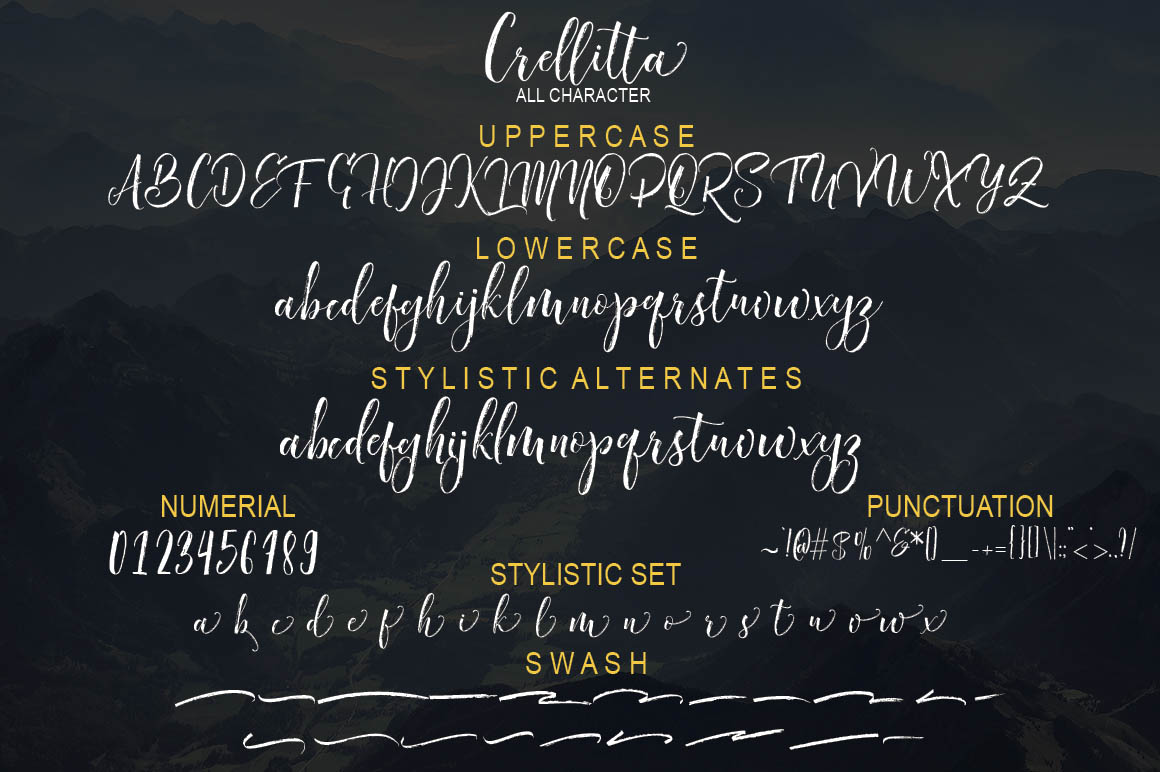 Crellitta
ALL CHARACTER
UPPERCASE
ABCDEFGHIJKLMNOPQRSTUVWXYZ
LOWERCASE
abcdefghijklmnopqrstuvwxyz
STYLISTIC ALTERNATES
abcdefghijklmnopqrstuvwxyz
NUMERIAL
0123456789
PUNCTUATION
~`!@#$%^&*()__-+={}[]\|:;"'<>,.?/
STYLISTIC SET
a b c d e f h i k l m n o r s t u v w x
SWASH